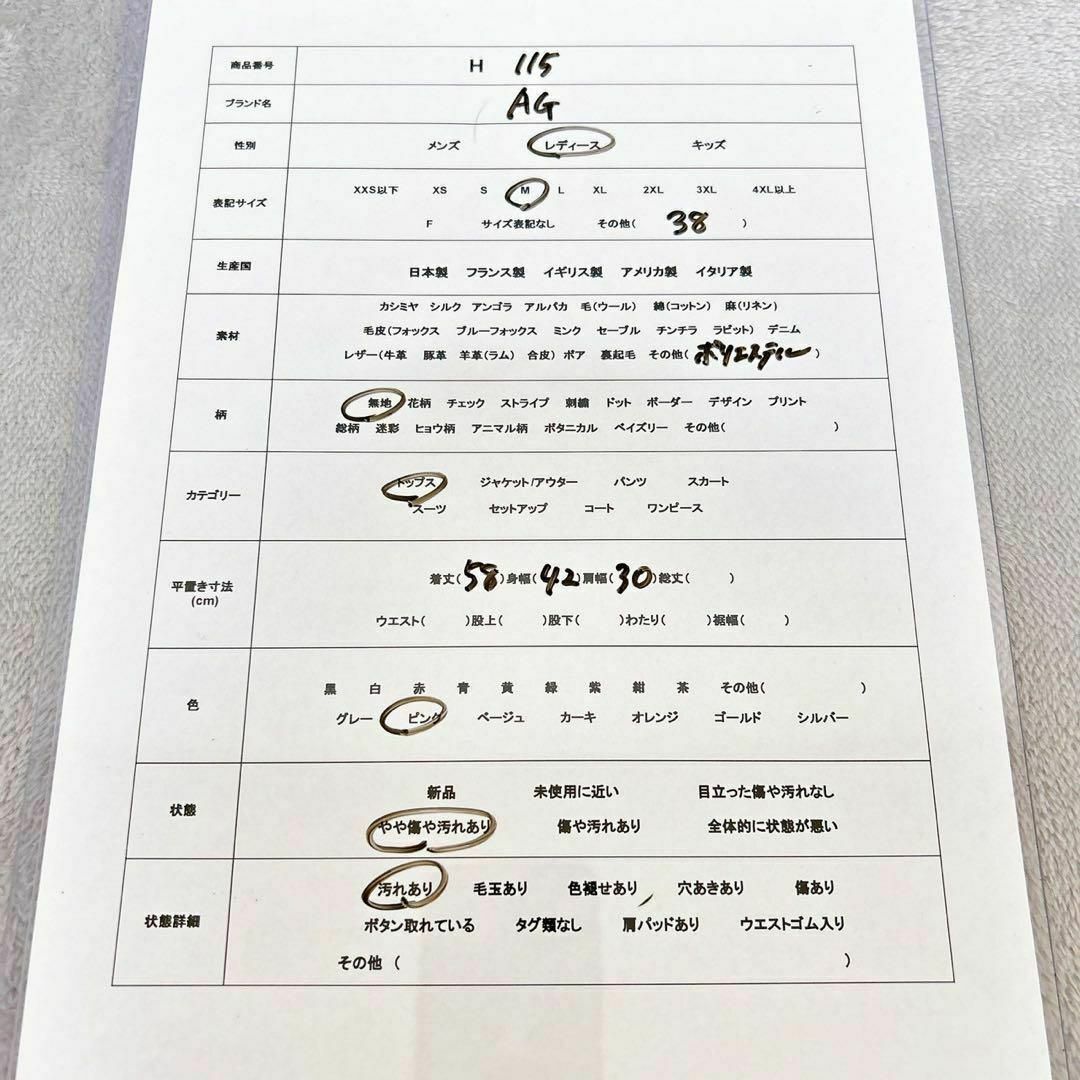 商品番号 H 115
ブランド名 AG
性別 メンズ レディース キッズ
表記サイズ XXS以下 XS S M L XL 2XL 3XL 4XL以上
F サイズ表記なし その他( 38 )
生産国 日本製 フランス製 イギリス製 アメリカ製 イタリア製
素材 カシミヤ シルク アンゴラ アルパカ 毛(ウール) 綿(コットン) 麻(リネン)
毛皮(フォックス ブルーフォックス ミンク セーブル チンチラ ラビット) デニム
レザー(牛革 豚革 羊革(ラム) 合皮) ボア 裏起毛 その他( ポリエステル )
柄 無地 花柄 チェック ストライプ 刺繍 ドット ボーダー デザイン プリント
総柄 迷彩 ヒョウ柄 アニマル柄 ボタニカル ペイズリー その他( )
カテゴリー トップス ジャケット/アウター パンツ スカート
スーツ セットアップ コート ワンピース
平置き寸法 着丈( 58 )身幅( 42 )肩幅( 30 )総丈( )
(cm) ウエスト( )股上( )股下( )わたり( )裾幅( )
色 黒 白 赤 青 黄 緑 紫 紺 茶 その他( )
グレー ピンク ベージュ カーキ オレンジ ゴールド シルバー
状態 新品 未使用に近い 目立った傷や汚れなし
やや傷や汚れあり 傷や汚れあり 全体的に状態が悪い
状態詳細 汚れあり 毛玉あり 色褪せあり 穴あきあり 傷あり
ボタン取れている タグ類なし 肩パッドあり ウエストゴム入り
その他 ( )